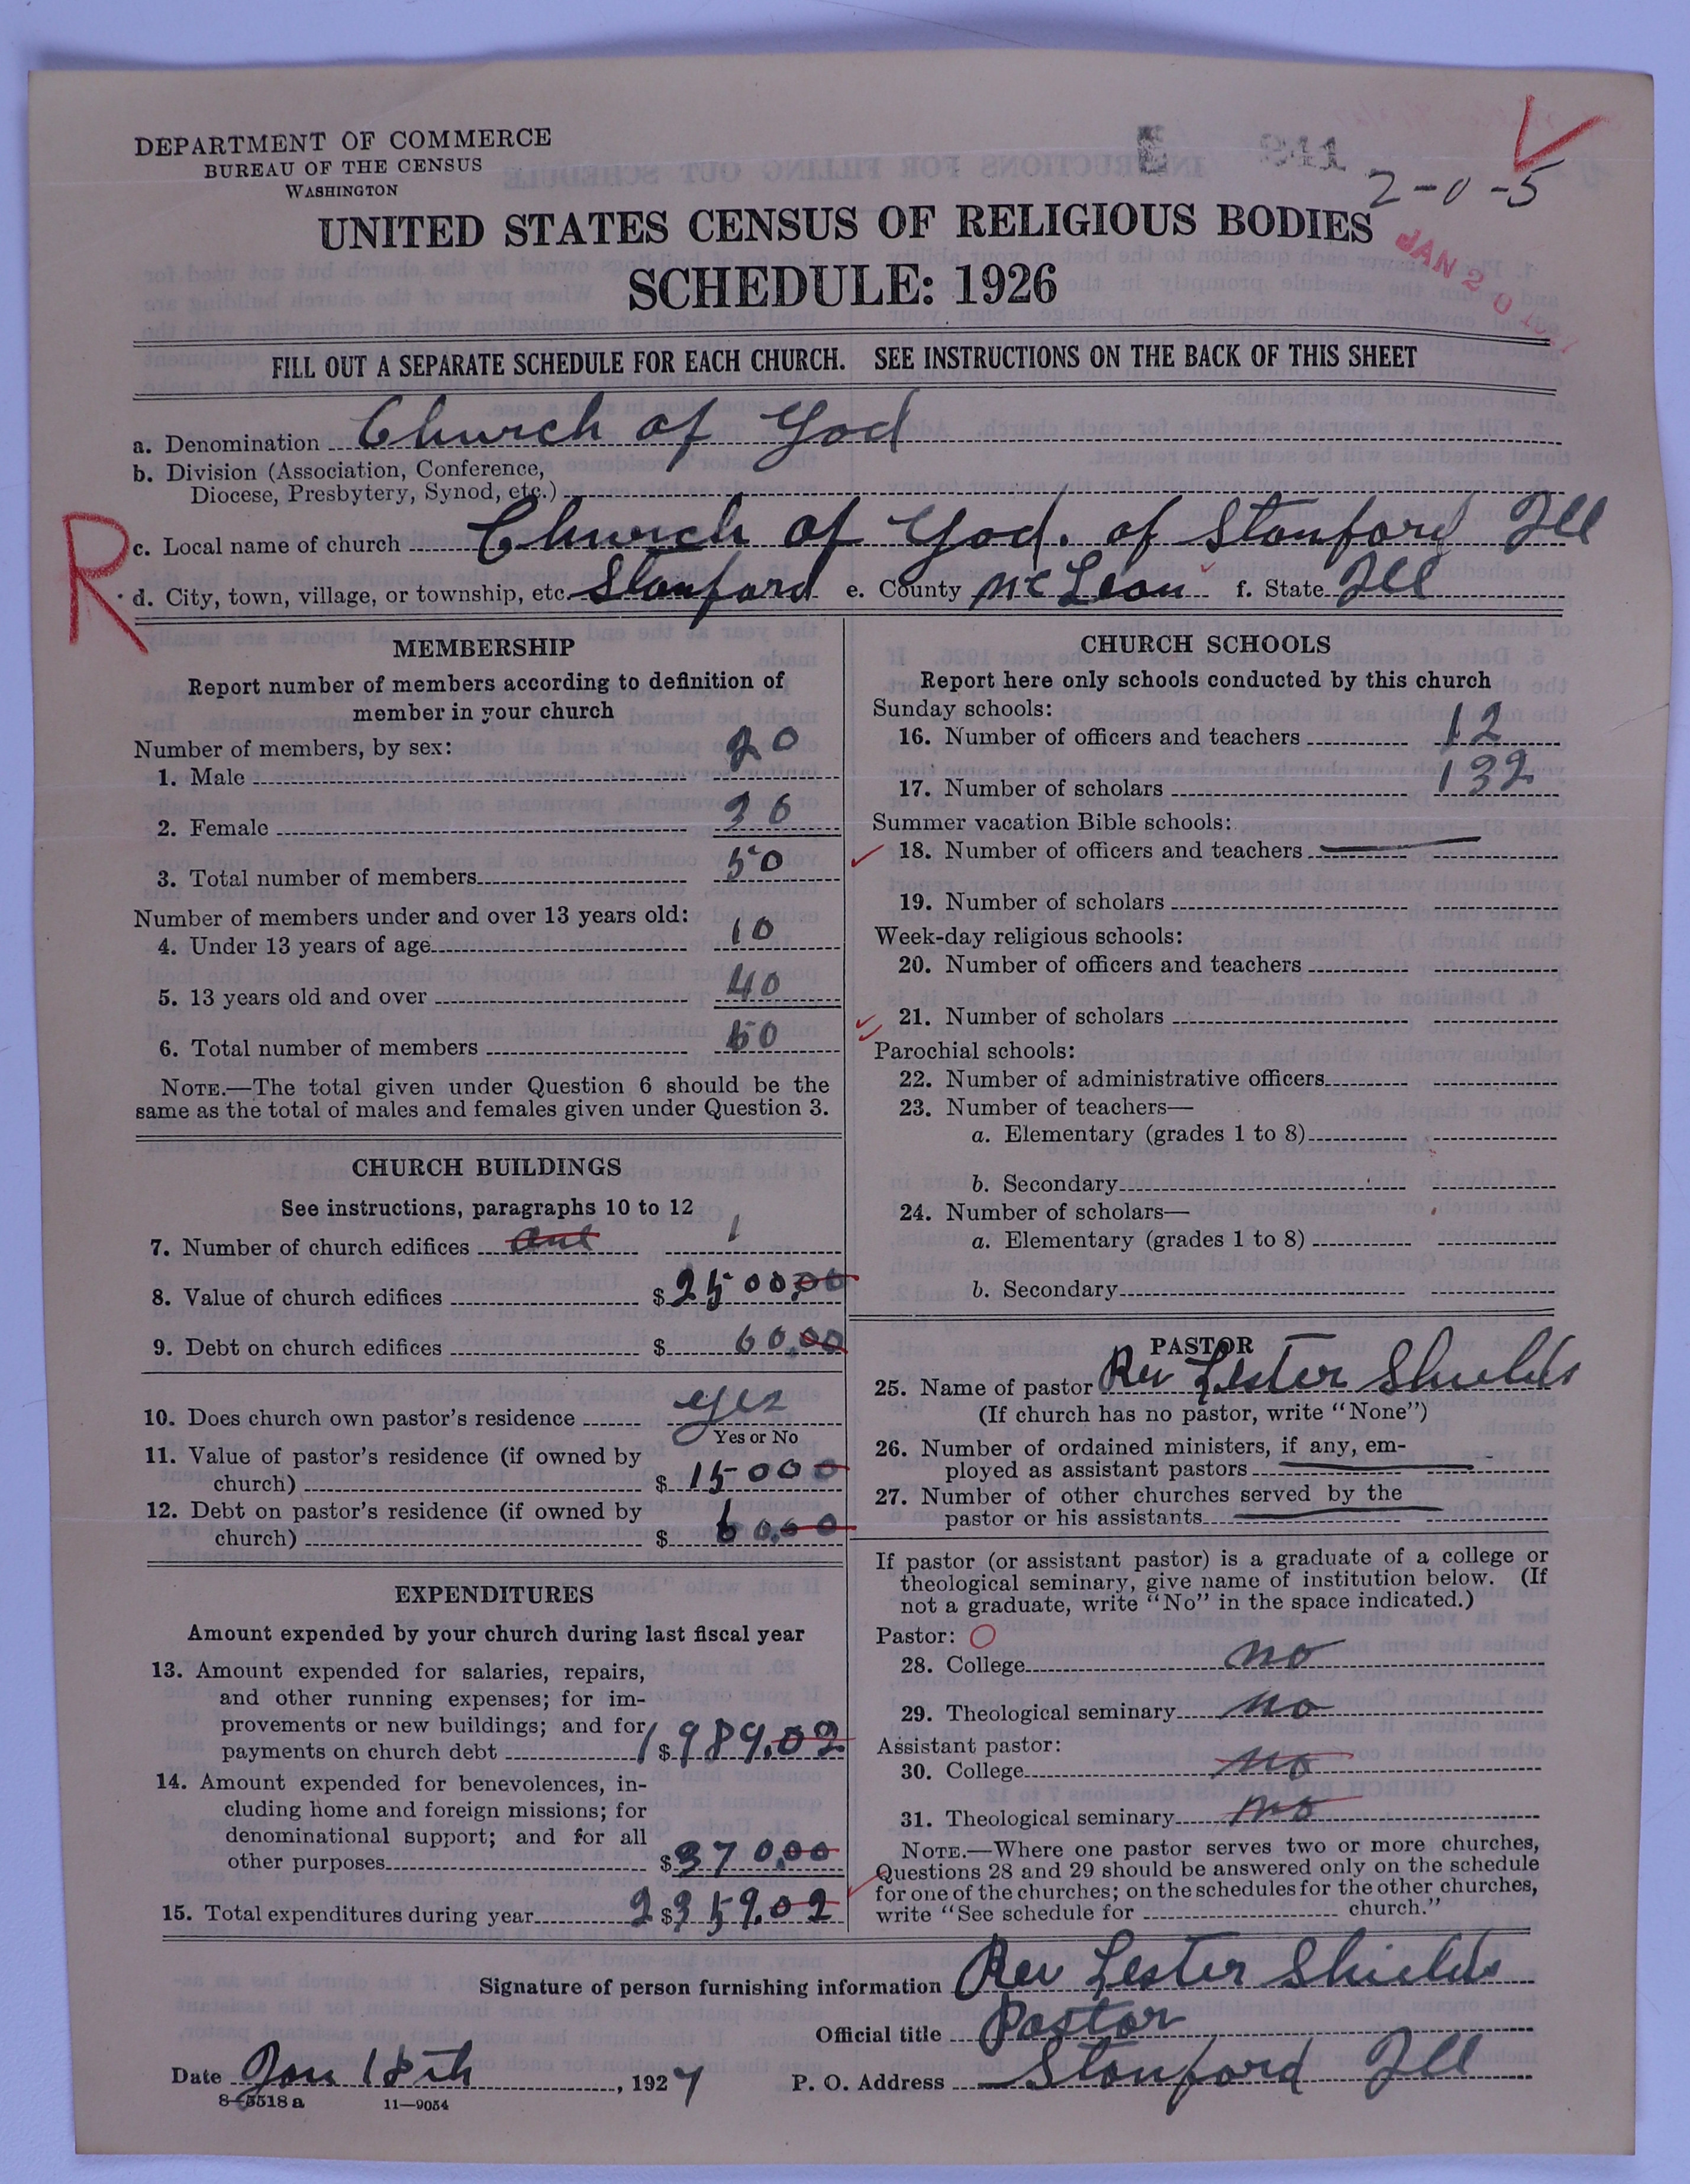 DEPARTMENT OF COMMERCE
BUREAU OF THE CENSUS
WASHINGTON
2-0-5
JAN 20
UNITED STATES CENSUS OF RELIGIOUS BODIES
SCHEDULE: 1926
FILL OUT A SEPARATE SCHEDULE FOR EACH CHURCH. SEE INSTRUCTIONS ON THE BACK OF THIS SHEET
a. Denomination Church of God
b. Division (Association, Conference,
Diocese, Presbytery, Synod, etc.)
R
c. Local name of church Church of God. of Stanford Ill
d. City, town, village, or township, etc. Stanford e. County McLean f. State Ill
MEMBERSHIP
Report number of members according to definition of
member in your church
Number of members, by sex:
1. Male 20
2. Female 30
3. Total number of members 50
Number of members under and over 13 years old:
4. Under 13 years of age 10
5. 13 years old and over 40
6. Total number of members 50
NOTE.—The total given under Question 6 should be the
same as the total of males and females given under Question 3.
CHURCH BUILDINGS
See instructions, paragraphs 10 to 12
7. Number of church edifices one 1
8. Value of church edifices $ 2500.00
9. Debt on church edifices $ 60.00
10. Does church own pastor's residence yes
Yes or No
11. Value of pastor's residence (if owned by
church) $ 15000
12. Debt on pastor's residence (if owned by
church) $ 60.00
EXPENDITURES
Amount expended by your church during last fiscal year
13. Amount expended for salaries, repairs,
and other running expenses; for im-
provements or new buildings; and for
payments on church debt 1$989.02
14. Amount expended for benevolences, in-
cluding home and foreign missions; for
denominational support; and for all
other purposes $370.00
15. Total expenditures during year 2$359.02
CHURCH SCHOOLS
Report here only schools conducted by this church
Sunday schools:
16. Number of officers and teachers 12
17. Number of scholars 132
Summer vacation Bible schools:
18. Number of officers and teachers
19. Number of scholars
Week-day religious schools:
20. Number of officers and teachers
21. Number of scholars
Parochial schools:
22. Number of administrative officers
23. Number of teachers—
a. Elementary (grades 1 to 8)
b. Secondary
24. Number of scholars—
a. Elementary (grades 1 to 8)
b. Secondary
PASTOR
25. Name of pastor Rev Lester Shields
(If church has no pastor, write "None")
26. Number of ordained ministers, if any, em-
ployed as assistant pastors
27. Number of other churches served by the
pastor or his assistants
If pastor (or assistant pastor) is a graduate of a college or
theological seminary, give name of institution below. (If
not a graduate, write "No" in the space indicated.)
Pastor: O
28. College no
29. Theological seminary no
Assistant pastor:
30. College no
31. Theological seminary no
NOTE.—Where one pastor serves two or more churches,
Questions 28 and 29 should be answered only on the schedule
for one of the churches; on the schedules for the other churches,
write "See schedule for church."
Signature of person furnishing information Rev Lester Shields
Official title Pastor
Date Jan 18th, 1927 P. O. Address Stanford Ill
8—5518 a 11—9054